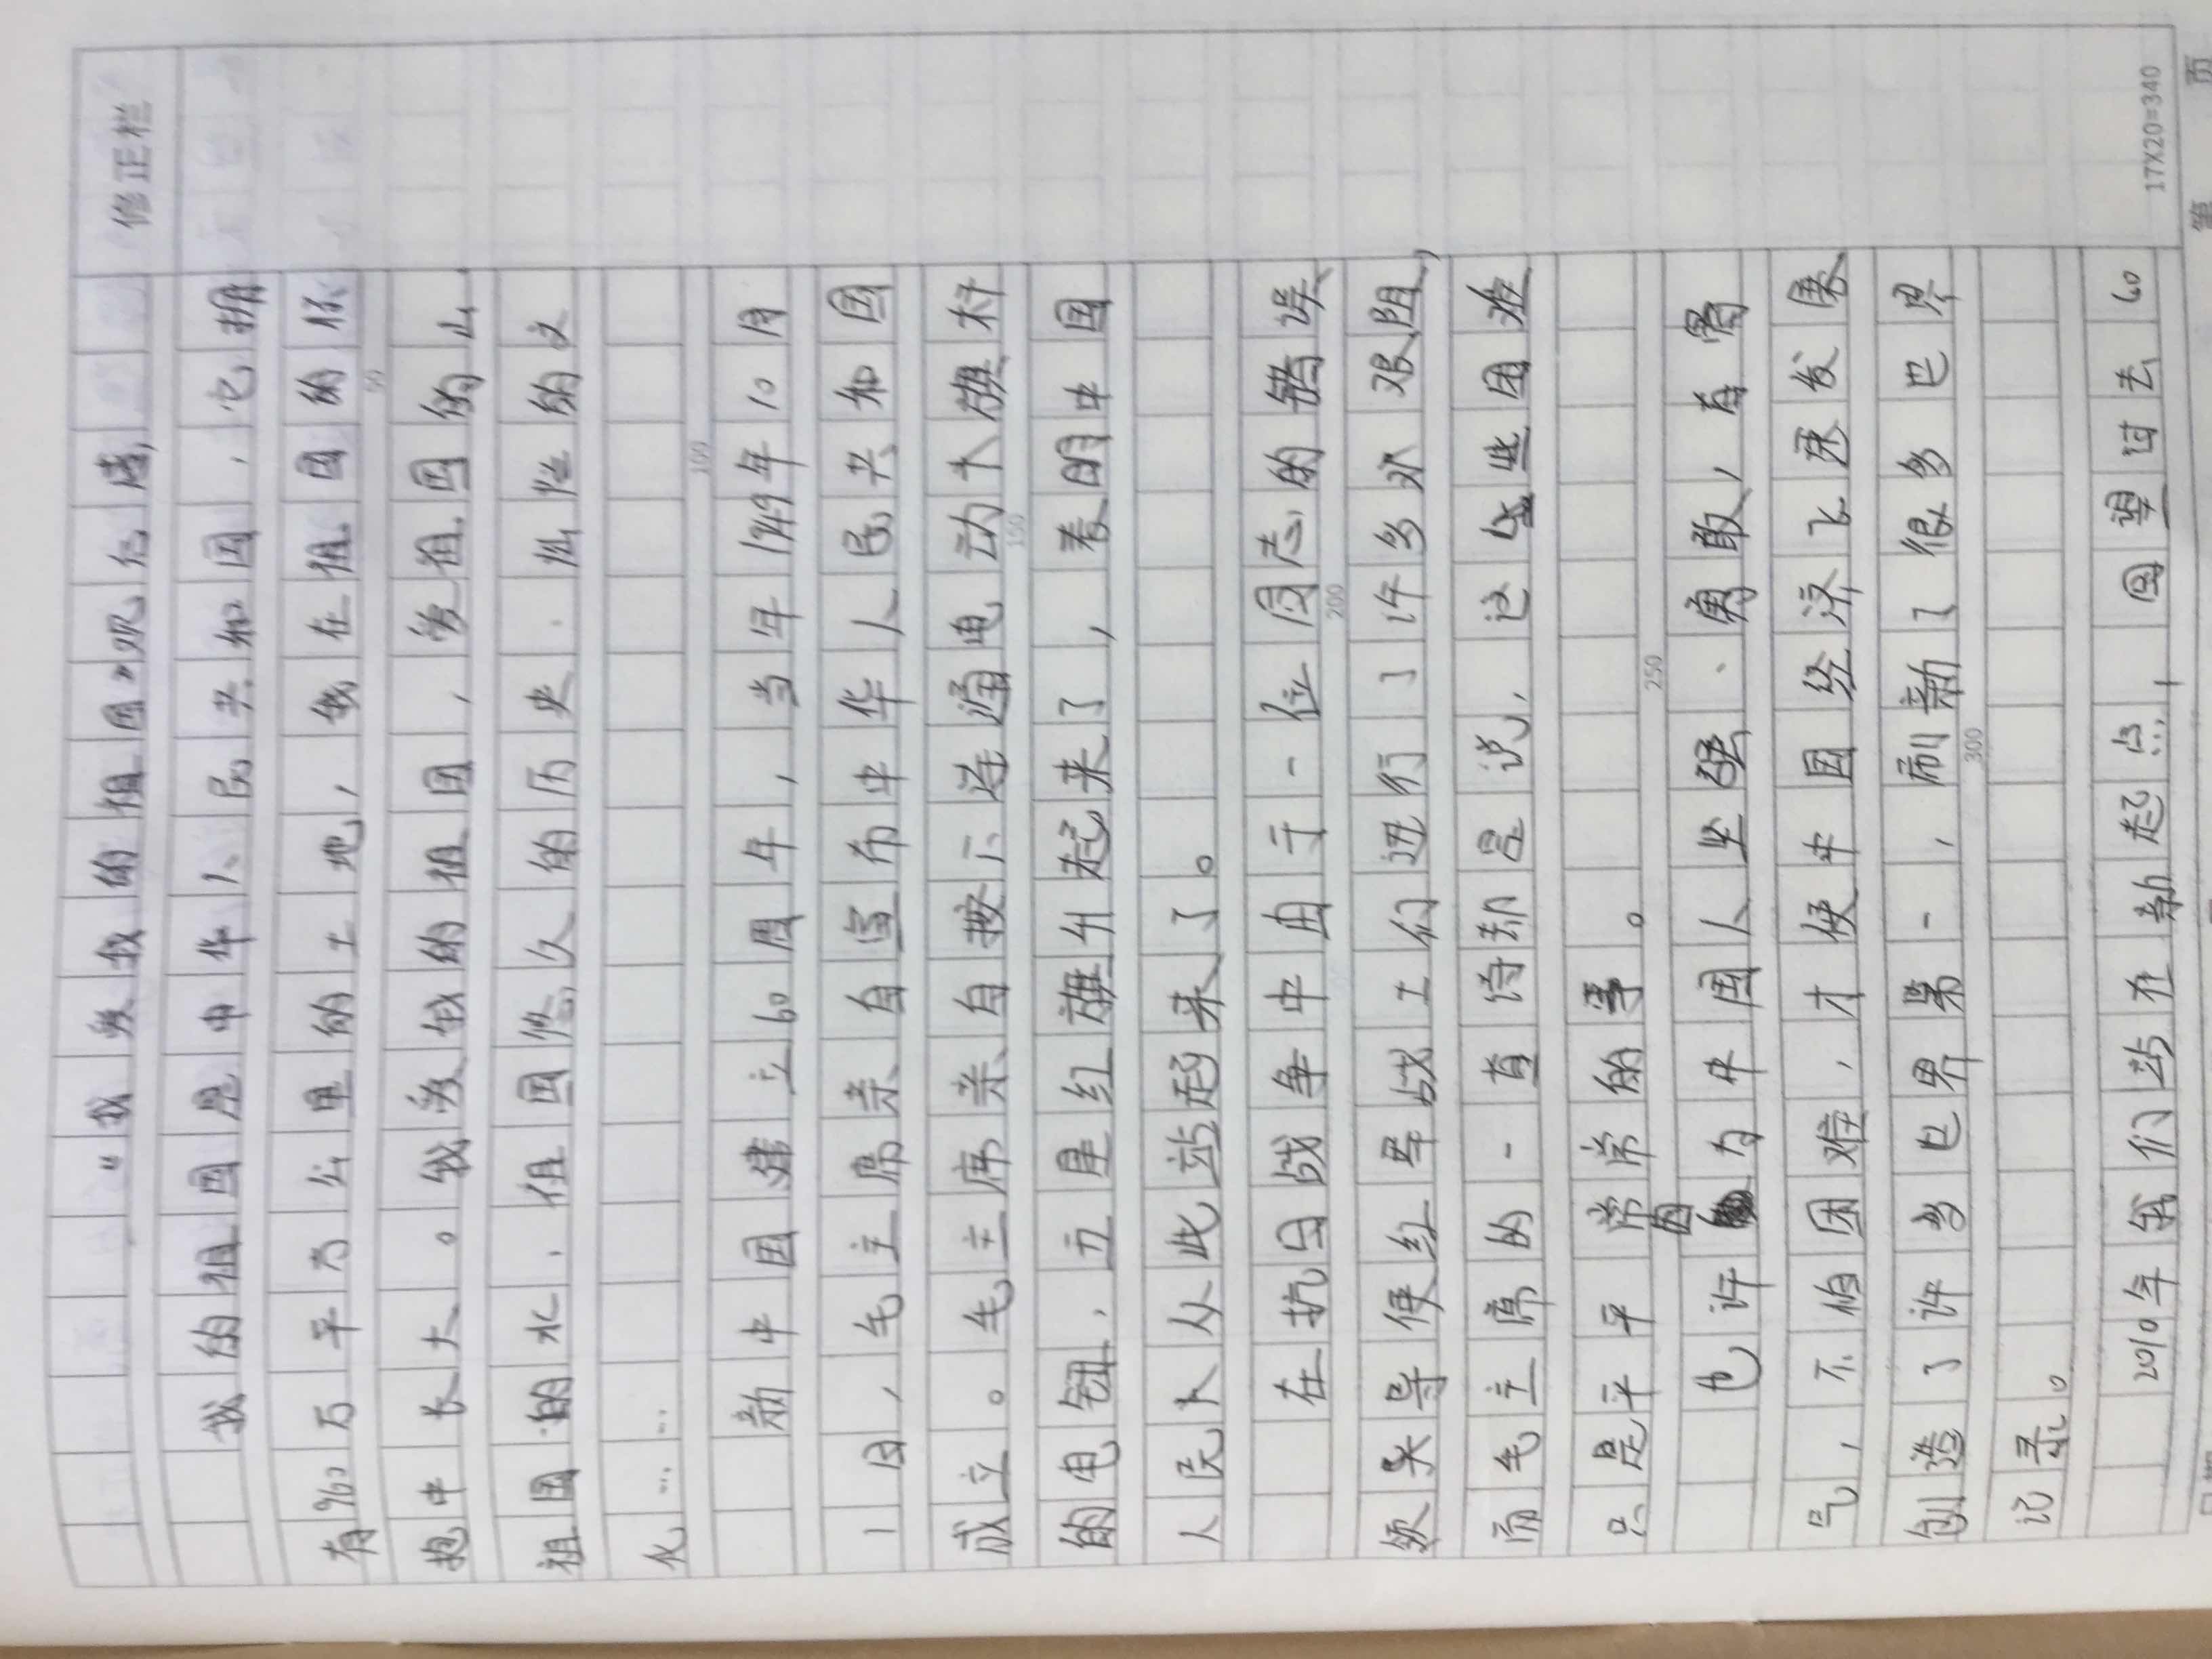 修正栏
“我爱我的祖国”观后感
我的祖国是中华人民共和国，它拥
有960万平方公里的土地，我在祖国的怀
50
抱中长大。我爱我的祖国，爱祖国的山
祖国的水，祖国悠久的历史、灿烂的文
化……
100
新中国建立60周年，当年1949年10月
1日，毛主席亲自宣布中华人民共和国
成立。毛主席亲自按下连通电动大旗杆
150
的电钮，五星红旗升起来了，表明中国
人民从此站起来了。
在抗日战争中由于一位同志的错误
200
领头导使红军战士们进行了许多次艰阻，
而毛主席的一首诗却足说，这些困难
只是平平常常的事。
250
也许因为中国人坚强、勇敢，有骨
气，不怕困难，才使中国经济飞速发展
创造了许多世界第一，刷新了很多世界
300
记录。
2010年我们站在新起点，回望过去60
17X20=340
第 页